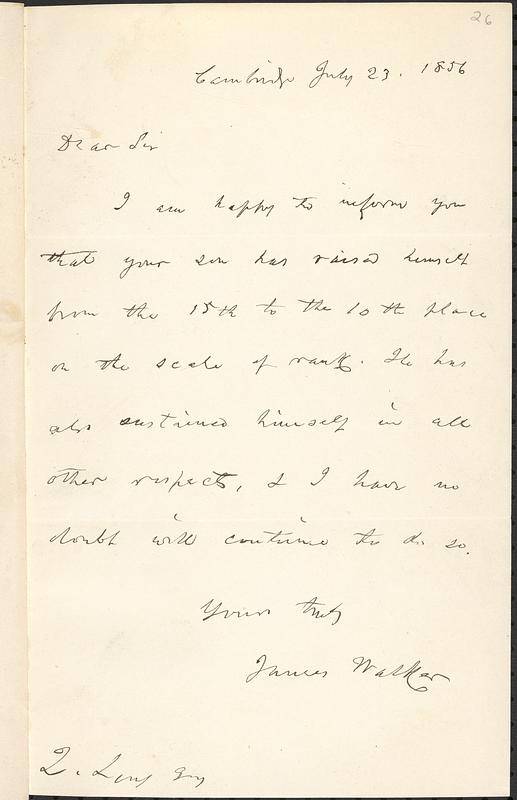 26
Cambridge July 23. 1856
Dear Sir
I am happy to inform you
that your son has raised himself
from the 15th to the 10th place
on the scale of rank. He has
also sustained himself in all
other respects, & I have no
doubt will continue to do so.
Yours truly
James Walker
Z. Long Esq